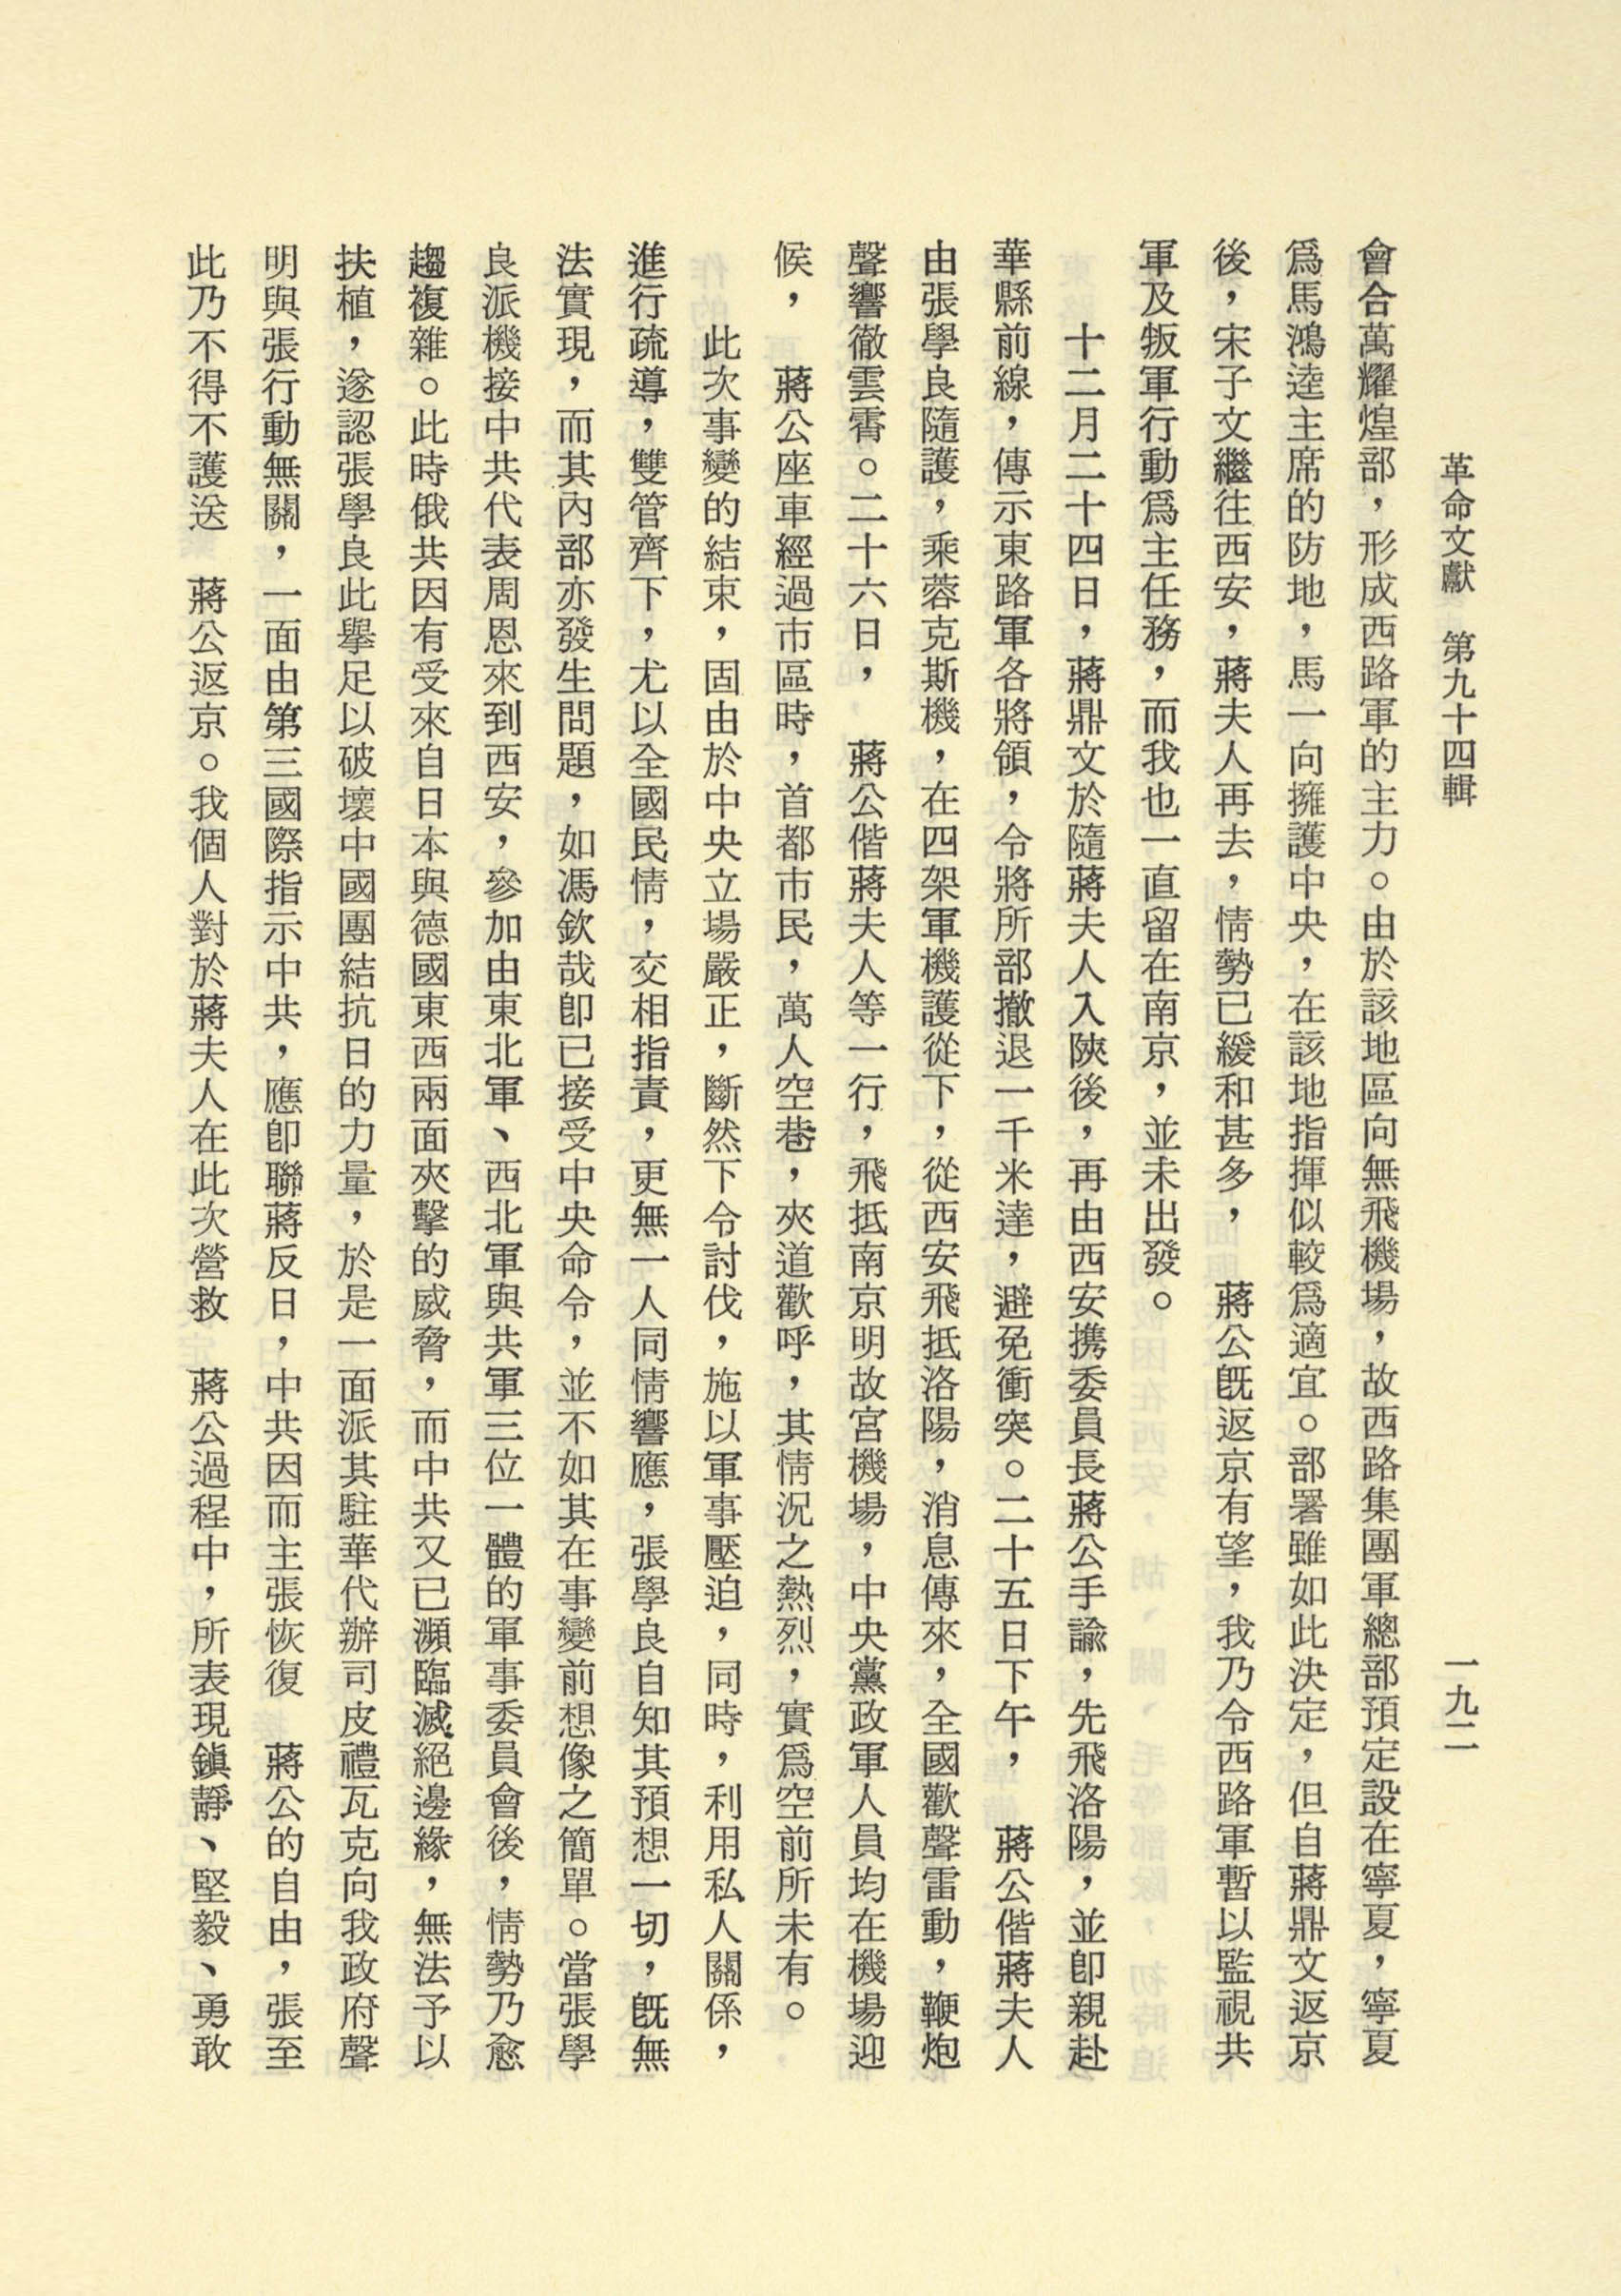 革命文獻　第九十四輯
一九二
會合萬耀煌部，形成西路軍的主力。由於該地區向無飛機場，故西路集團軍總部預定設在寧夏，寧夏
爲馬鴻逵主席的防地，馬一向擁護中央，在該地指揮似較爲適宜。部署雖如此決定，但自蔣鼎文返京
後，宋子文繼往西安，蔣夫人再去，情勢已緩和甚多，　蔣公旣返京有望，我乃令西路軍暫以監視共
軍及叛軍行動爲主任務，而我也一直留在南京，並未出發。
　　十二月二十四日，蔣鼎文於隨蔣夫人入陝後，再由西安携委員長蔣公手諭，先飛洛陽，並卽親赴
華縣前線，傳示東路軍各將領，令將所部撤退一千米達，避免衝突。二十五日下午，　蔣公偕蔣夫人
由張學良隨護，乘蓉克斯機，在四架軍機護從下，從西安飛抵洛陽，消息傳來，全國歡聲雷動，鞭炮
聲響徹雲霄。二十六日，　蔣公偕蔣夫人等一行，飛抵南京明故宮機場，中央黨政軍人員均在機場迎
候，　蔣公座車經過市區時，首都市民，萬人空巷，夾道歡呼，其情況之熱烈，實爲空前所未有。
　　此次事變的結束，固由於中央立場嚴正，斷然下令討伐，施以軍事壓迫，同時，利用私人關係，
進行疏導，雙管齊下，尤以全國民情，交相指責，更無一人同情響應，張學良自知其預想一切，旣無
法實現，而其內部亦發生問題，如馮欽哉卽已接受中央命令，並不如其在事變前想像之簡單。當張學
良派機接中共代表周恩來到西安，參加由東北軍、西北軍與共軍三位一體的軍事委員會後，情勢乃愈
趨複雜。此時俄共因有受來自日本與德國東西兩面夾擊的威脅，而中共又已瀕臨滅絕邊緣，無法予以
扶植，遂認張學良此擧足以破壞中國團結抗日的力量，於是一面派其駐華代辦司皮禮瓦克向我政府聲
明與張行動無關，一面由第三國際指示中共，應卽聯蔣反日，中共因而主張恢復　蔣公的自由，張至
此乃不得不護送　蔣公返京。我個人對於蔣夫人在此次營救　蔣公過程中，所表現鎭靜、堅毅、勇敢